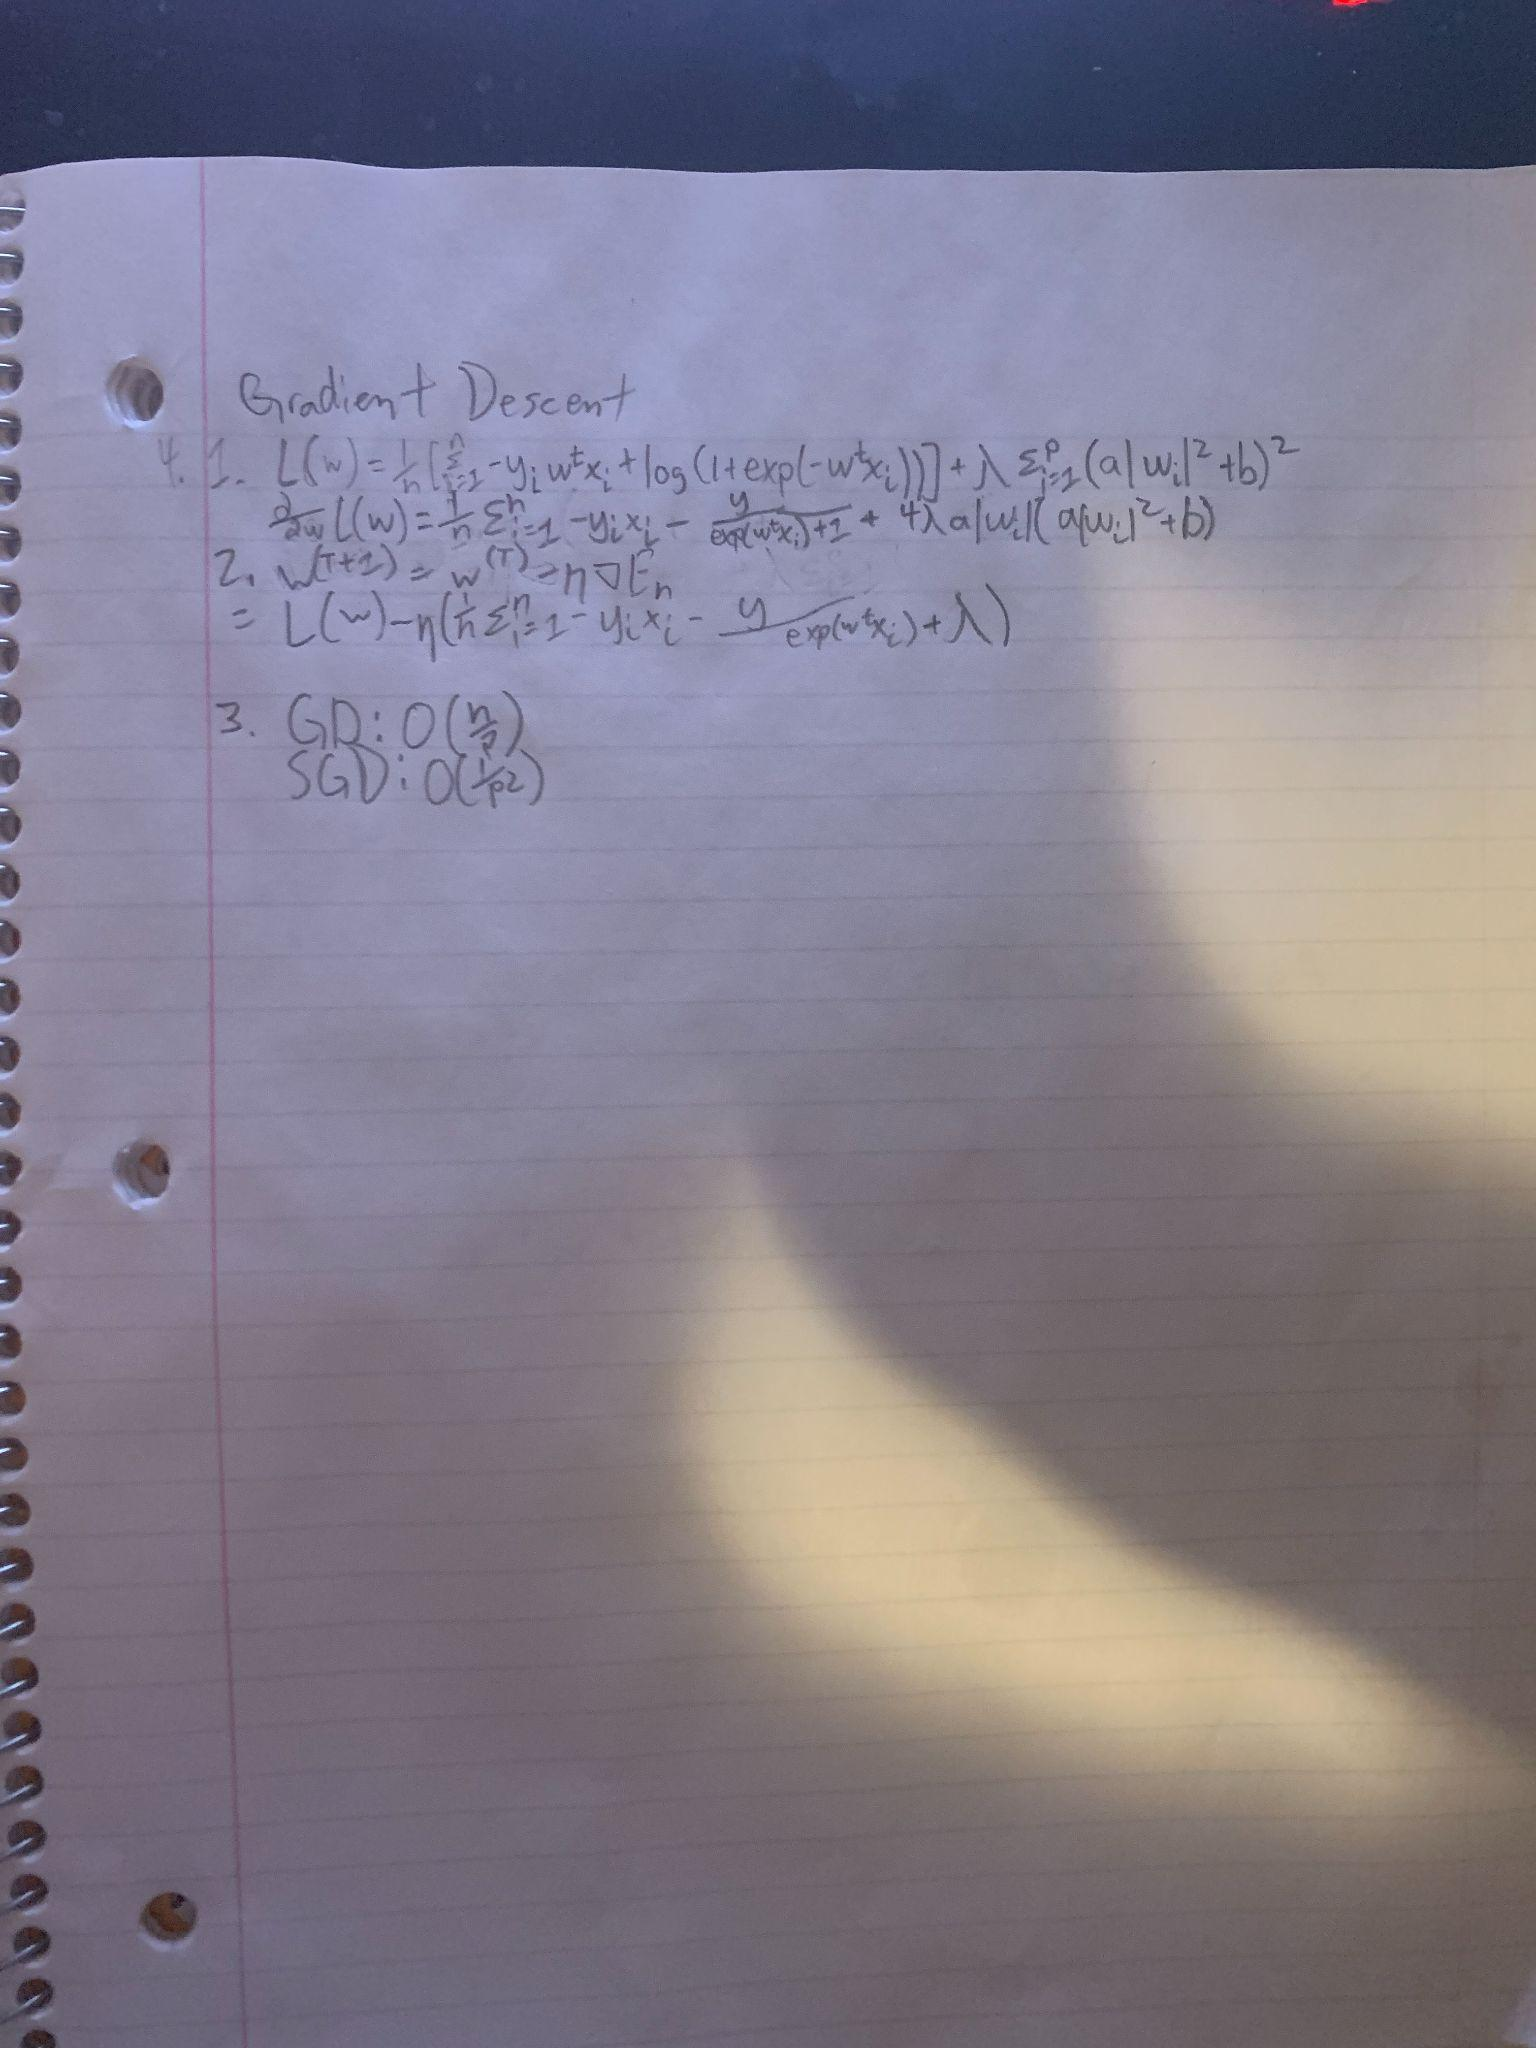 Gradient Descent
4.1. L(w) = 1/n [Σ_{i=1}^n -y_i w^t x_i + log(1+exp(-w^t x_i))] + λ Σ_{i=1}^p (a|w_i|^2+b)^2
∂/∂w L(w) = 1/n Σ_{i=1}^n -y_i x_i - y/(exp(w^t x_i)+1) + 4λa|w_i|(a|w_i|^2+b)
2. w^(T+1) = w^(T) - η∇E_n
= L(w) - η(1/n Σ_{i=1}^n - y_i x_i - y/exp(w^t x_i) + λ)
3. GD: O(n/p)
SGD: O(1/p2)